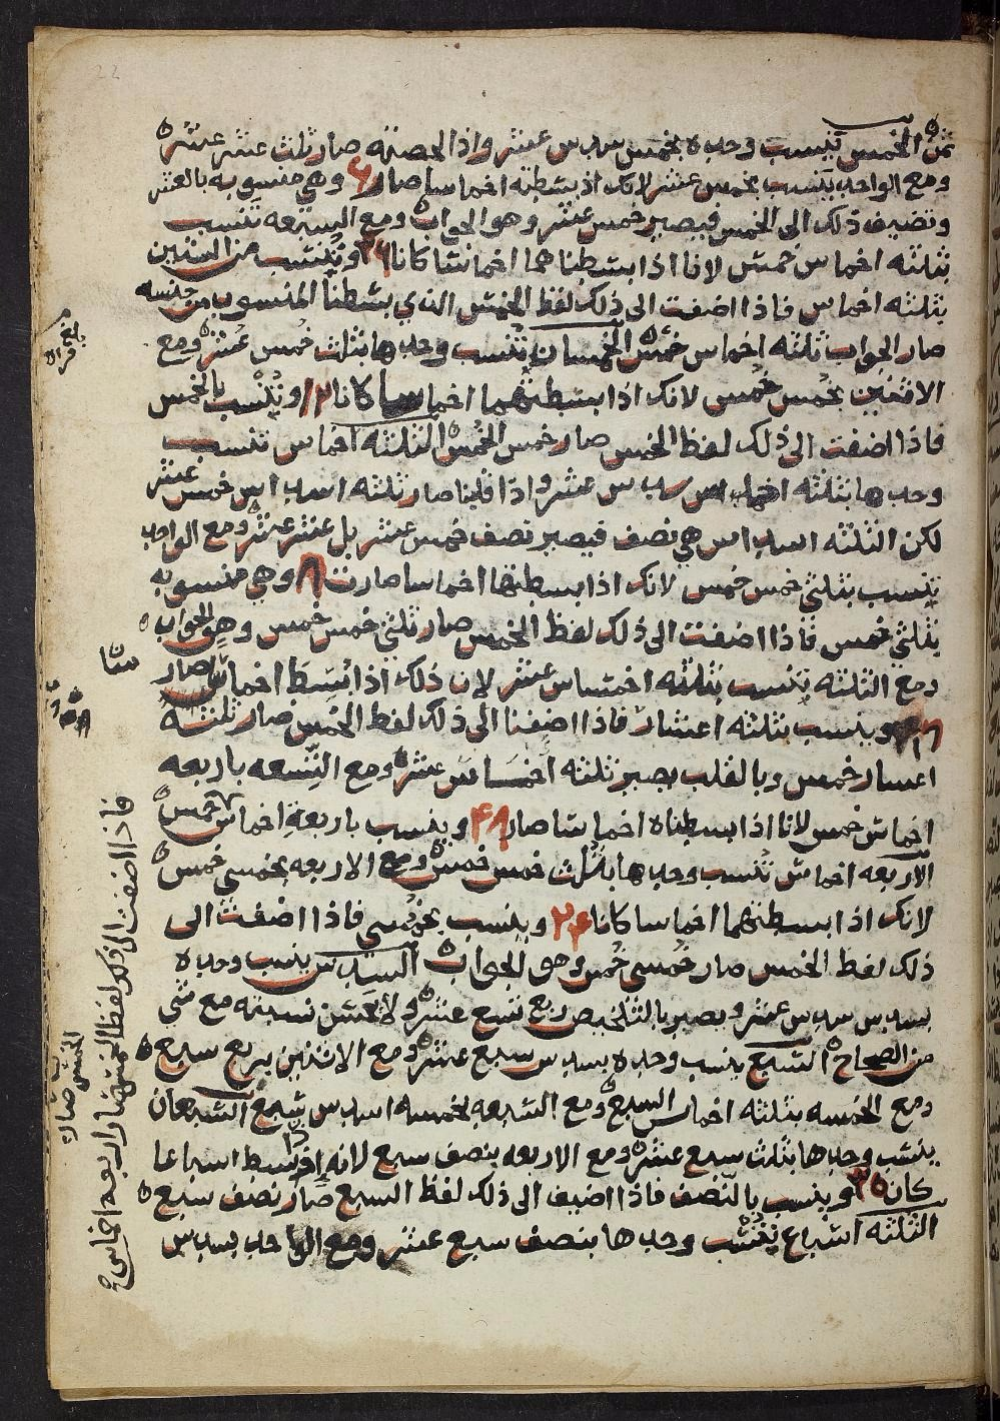 ثمن الخمس تنسب وحده بخمس سدس عشر واذا لخصته صار ثلث عشر عشر
ومع الواحد ينسب بخمس عشر لانك اذ بسطته اخماسا صار ٦ وهي منسوبه بالعشر
وتضيف ذلك الى الخمس فيصير خمس عشر وهو الجواب ومع السبعه تنسب
بثلثه اخماس خمس لانا اذا بسطناهما اخماسا كانا ٣٦ وتنسب من الستين
بثلثه اخماس فاذا اضفت الى ذلك لفظ الخمس الذي بسطنا المنسوب من جنسه
صار الجواب ثلثه اخماس خمس الخمسان تنسب وحدها بثلث خمس عشر ومع
الاثنين بخمس خمس لانك اذا بسطتهما اخماسا كانا ١٢ وتنسب بالخمس
فاذا اضفت الى ذلك لفظ الخمس صار خمس الخمس الثلثه اخماس تنسب
وحدها بثلثه اخماس سدس عشر واذا قلبنا صار ثلثه اسداس خمس عشر
لكن الثلثه اسداس هي نصف فيصير نصف خمس عشر بل عشر عشر ومع الواحد
ينسب بثلثي خمس خمس لانك اذا بسطتها اخماسا صارت ٨ وهي منسوبه
بثلثي خمس فاذا اضفت الى ذلك لفظ الخمس صار ثلثي خمس خمس وهو الجواب
ومع الثلثه ينسب بثلثه اخماس عشر لان ذلك اذا بسط اخماسا صار
١٨ وينسب بثلثه اعشار فاذا اضفنا الى ذلك لفظ الخمس صار ثلثه
اعشار خمس وبالقلب يصير ثلثه اخماس عشر ومع التسعه باربعه
اخماس خمس لانا اذا بسطناه اخماسا صار ٤٨ وينسب باربعة اخماس خمس
الاربعه اخماس تنسب وحدها بثلث خمس خمس ومع الاربعه بخمسي خمس
لانك اذا بسطتهما اخماسا كانا ٢٤ وينسب بخمسي فاذا اضفت الى
ذلك لفظ الخمس صار خمسي خمس وهو الجواب السدس ينسب وحده
بسدس سدس عشر ويصير بالتلخيص ربع تسع عشر ولا تحسن نسبته مع شي
من الصحاح السبع ينسب وحده بسدس سبع عشر ومع الاثنين بربع سبع
ومع الخمسه بثلثه اخماس السبع ومع السبعه بخمسه اسداس سبع السبعان
ينسب وحدها بثلث سبع عشر ومع الاربعه بنصف سبع لانه اذا بسط اسباعا
كان ٣٠ وينسب بالنصف فاذا اضيف الى ذلك لفظ السبع صار نصف سبع
الثلثه اسباع تنسب وحدها بنصف سبع عشر ومع الواحد بسدس
فاذا اضفت الى ذلك لفظ الخمس صار اربعه اخماس